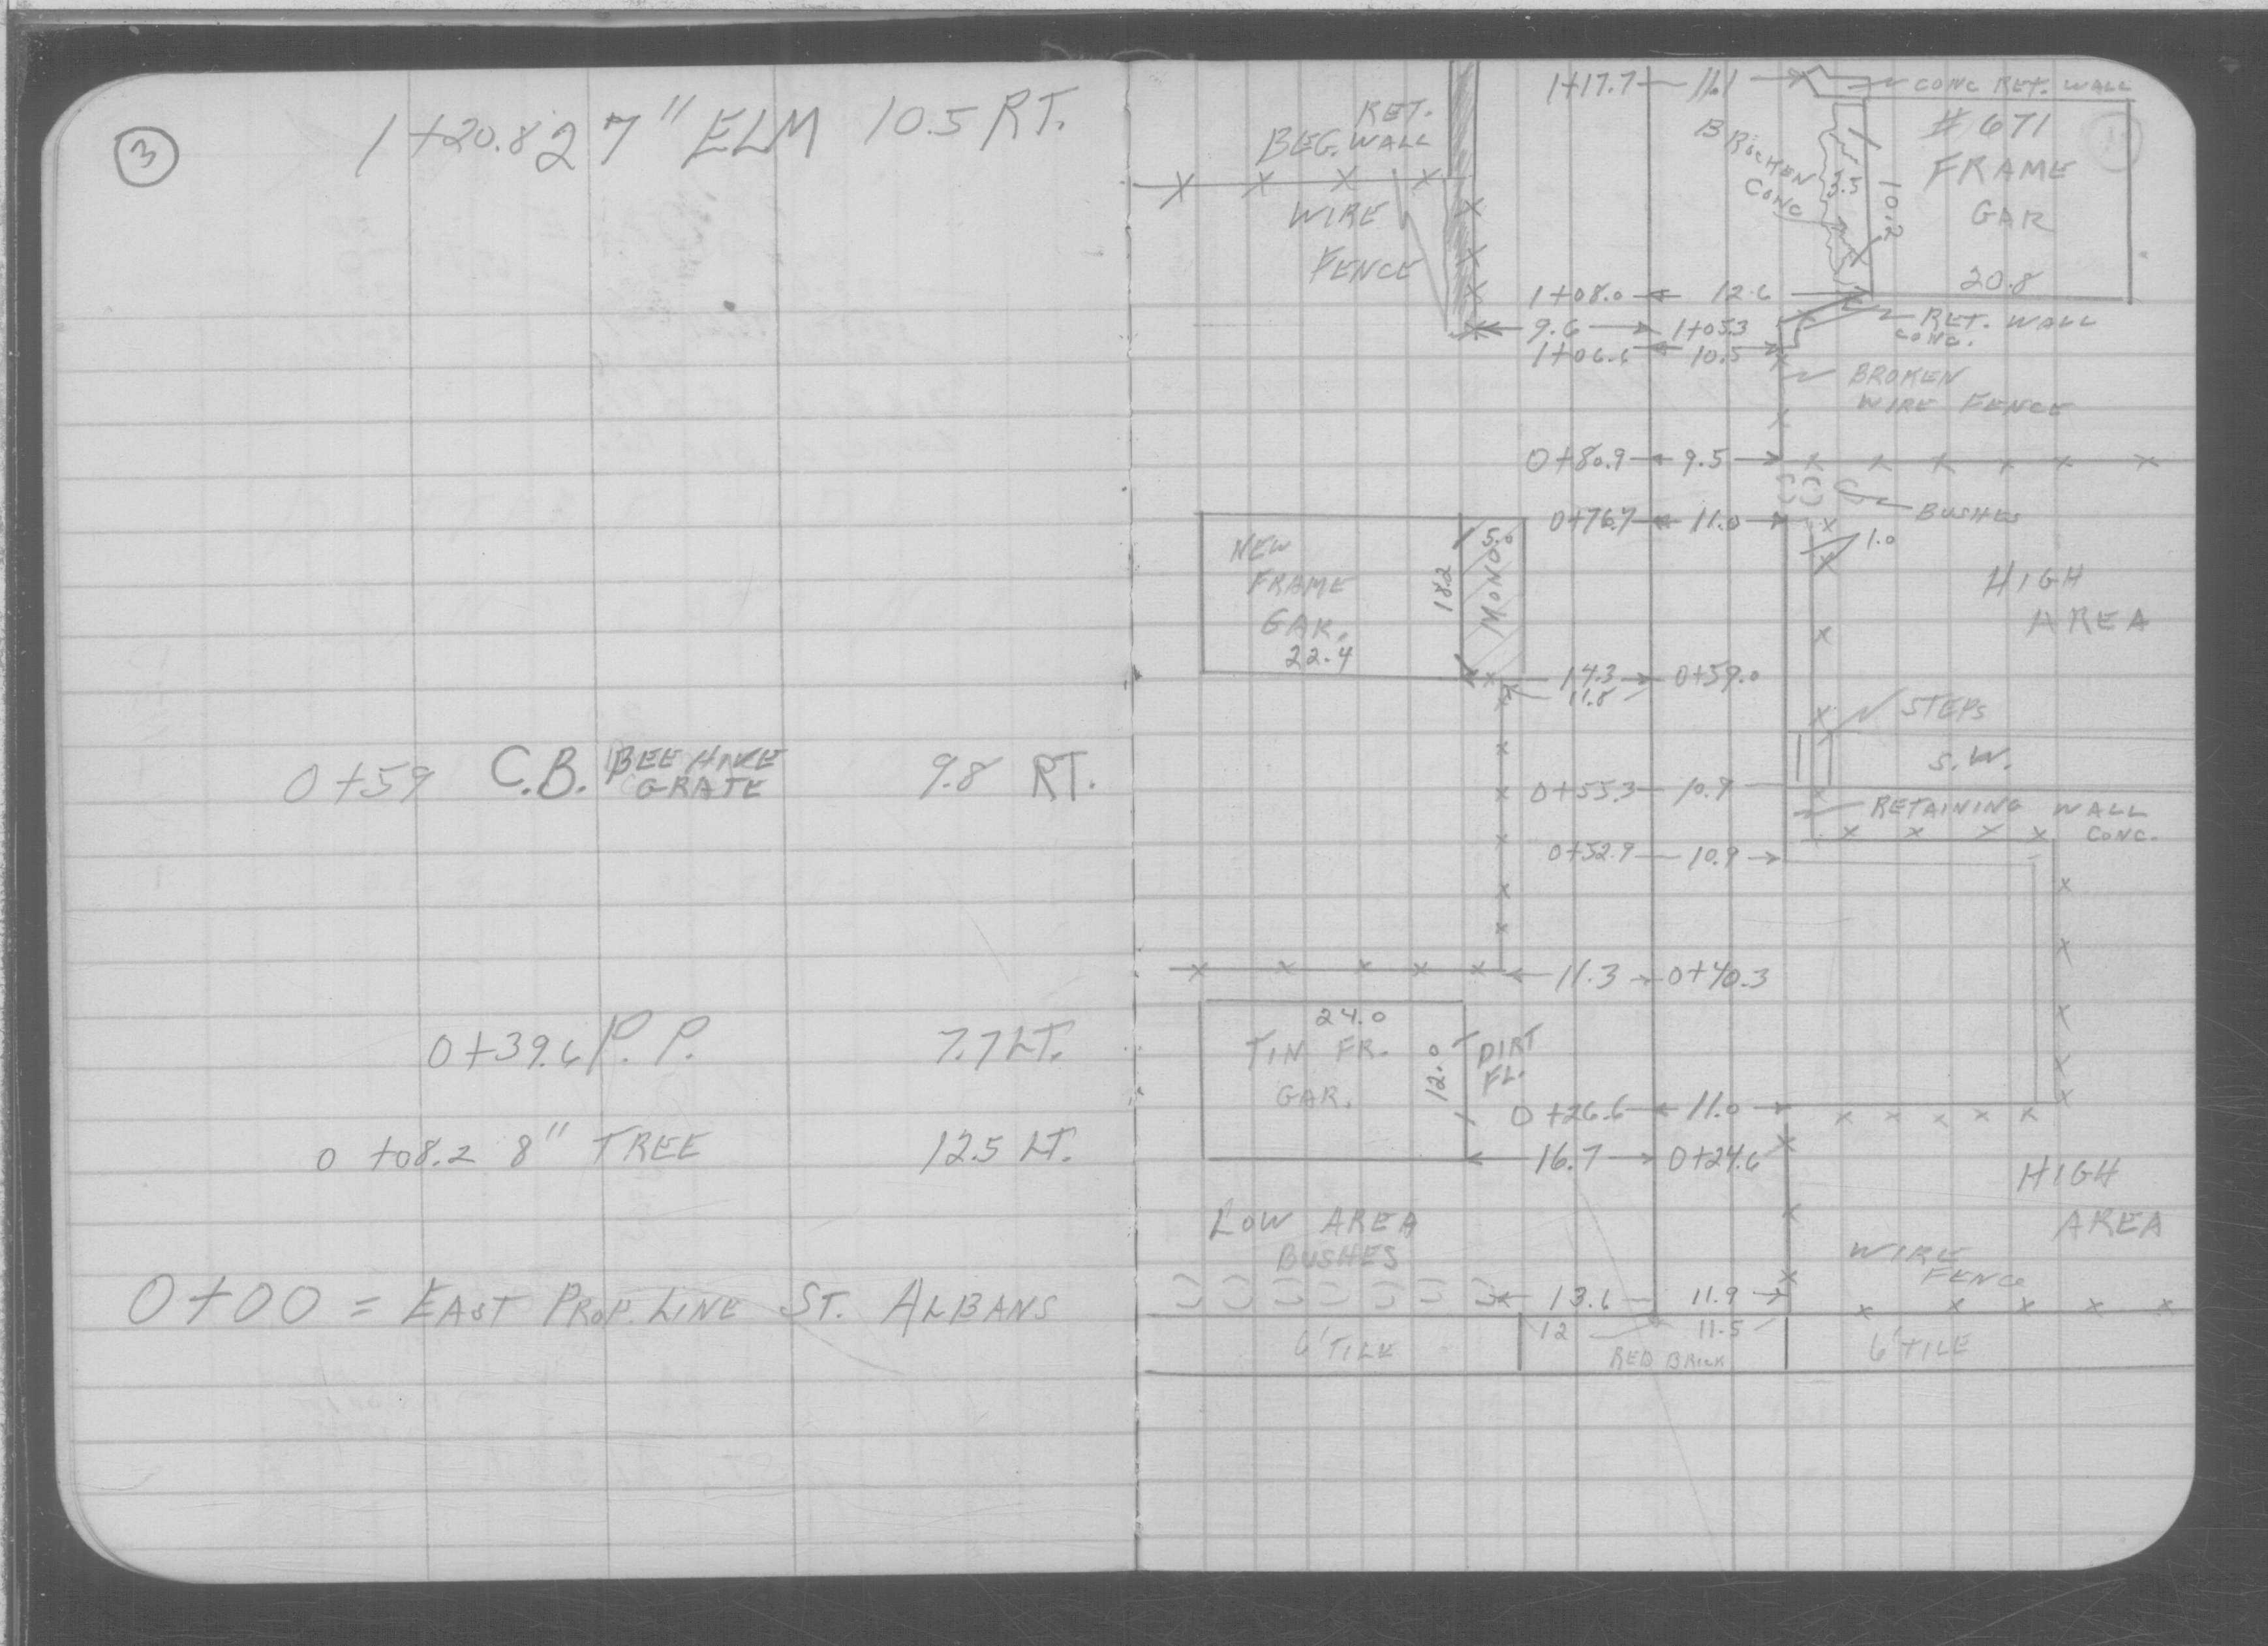 3
1+20.8 27" ELM 10.5 RT.
0+59 C.B. BEE HIVE GRATE 9.8 RT.
0+39.6 P.P. 7.7 LT.
0+08.2 8" TREE 12.5 LT.
0+00 = EAST PROP. LINE ST. ALBANS
1+17.7 11.1 CONC RET. WALL
RET.
BEG. WALL
BROKEN
CONC
3.5
10.2
# 671
FRAME
GAR
20.8
WIRE
FENCE
1+08.0 12.6
9.6 1+05.3
RET. WALL
CONC.
1+06.6 10.5
BROKEN
WIRE FENCE
0+80.9 9.5
0+76.7 11.0
BUSHES
1.0
NEW
FRAME
GAR.
22.4
18.2
5.0
MONO
HIGH
AREA
14.3 0+59.0
11.8
STEPS
S.W.
0+55.3 10.9
RETAINING WALL
CONC.
0+52.9 10.9
11.3 0+40.3
24.0
TIN FR.
GAR.
12.0
DIRT
FL.
0+26.6 11.0
16.7 0+24.6
HIGH
AREA
LOW AREA
BUSHES
WIRE
FENCE
13.6 11.9
12 11.5
6' TILE
RED BRICK
6' TILE